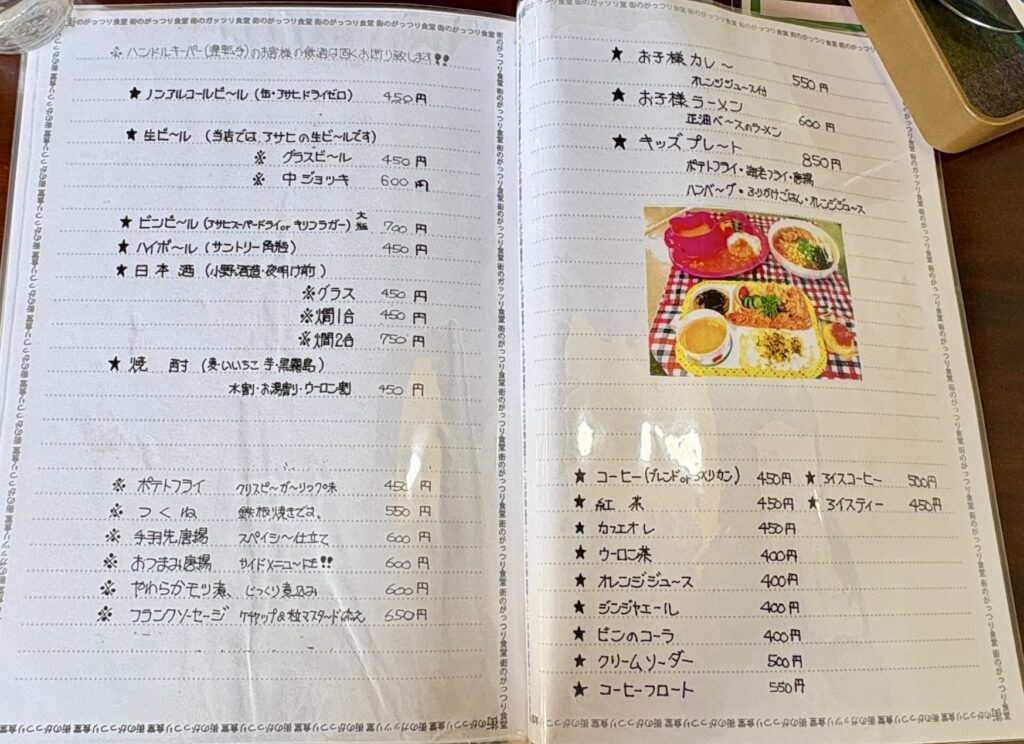 街のがっつり食堂 街のガッツリ食堂 街のがっつり食堂 街のがっつり食堂
※ ハンドルキーパー(運転手)のお客様の飲酒は固くお断り致します!!
★ ノンアルコールビール (缶・アサヒドライゼロ) 450円
★ 生ビール (当店では、アサヒの生ビールです)
※ グラスビール 450円
※ 中ジョッキ 600円
★ ビンビール (アサヒスーパードライor キリンラガー) 大瓶 700円
★ ハイボール (サントリー角瓶) 450円
★ 日本酒 (小野酒造・夜明け前)
※グラス 450円
※燗1合 450円
※燗2合 750円
★ 焼酎 (麦・いいちこ 芋・黒霧島)
水割・お湯割・ウーロン割 450円
※ ポテトフライ クリスピーガーリック味 450円
※ つくね 鉄板焼きです。 550円
※ 手羽先唐揚 スパイシー仕立て 600円
※ おつまみ唐揚 サイドメニューにも!! 600円
※ やわらかモツ煮、じっくり煮込み 600円
※ フランクソーセージ ケチャップ&粒マスタード添え 650円
★ お子様カレー 550円
オレンジジュース付
★ お子様ラーメン
正油ベースのラーメン 600円
★ キッズプレート 850円
ポテトフライ・海老フライ・唐揚
ハンバーグ・ふりかけごはん・オレンジジュース
★ コーヒー(ブレンドorアメリカン) 450円 ★ アイスコーヒー 500円
★ 紅茶 450円 ★ アイスティー 450円
★ カフェオレ 450円
★ ウーロン茶 400円
★ オレンジジュース 400円
★ ジンジャエール 400円
★ ビンのコーラ 400円
★ クリームソーダー 500円
★ コーヒーフロート 550円